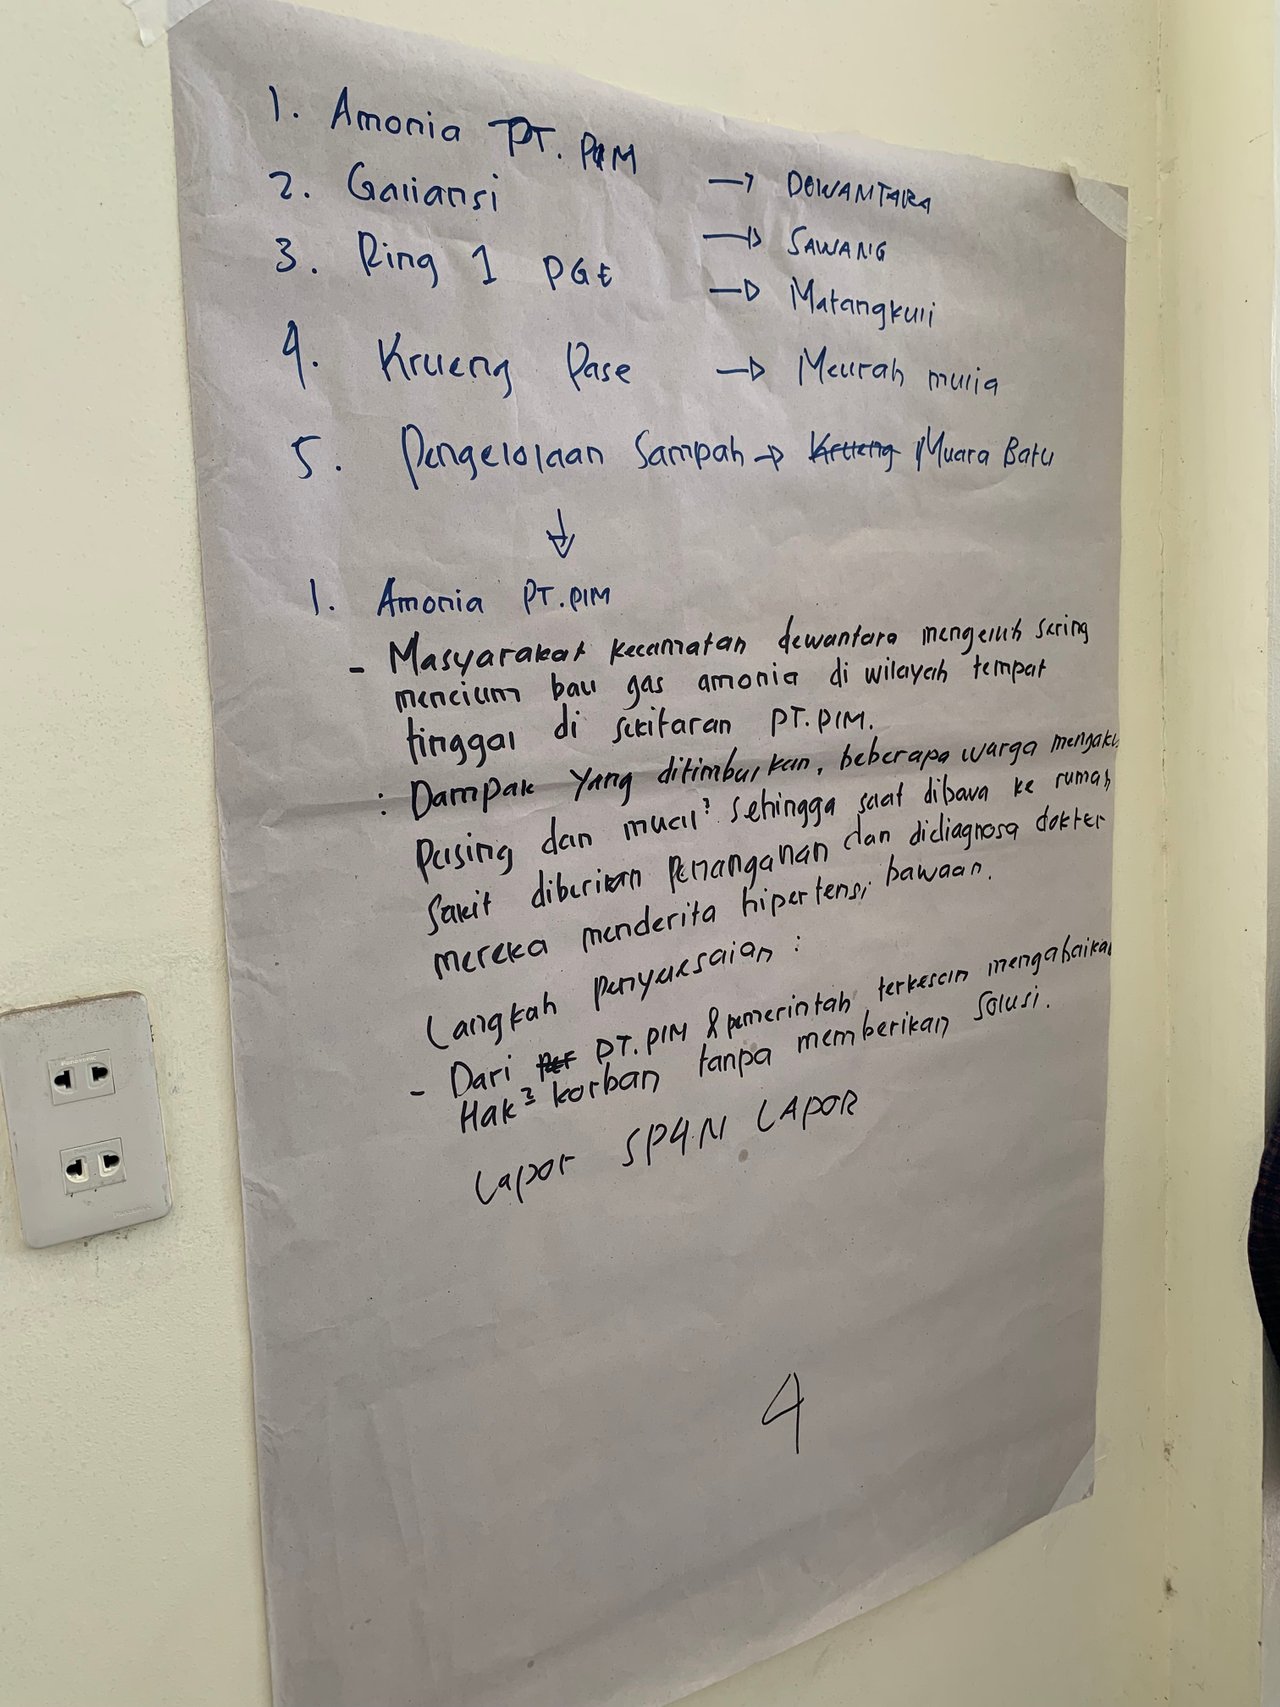 1. Amonia PT. PIM → DEWANTARA
2. Galiansi → SAWANG
3. Ring 1 PGE → Matangkuli
4. Krueng Pase → Meurah mulia
5. Pengelolaan Sampah → Krueng Muara Batu
↓
1. Amonia PT.PIM
- Masyarakat kecamatan dewantara mengeluh sering
mencium bau gas amonia di wilayah tempat
tinggal di sekitaran PT.PIM.
: Dampak yang ditimbulkan, beberapa warga mengaku
pusing dan mual² sehingga saat dibawa ke rumah
sakit diberikan penanganan dan didiagnosa dokter
mereka menderita hipertensi bawaan.
Langkah penyelesaian :
- Dari PT.PIM & pemerintah terkesan mengabaikan
Hak² korban tanpa memberikan solusi.
Lapor SP4N LAPOR
4
Panasonic